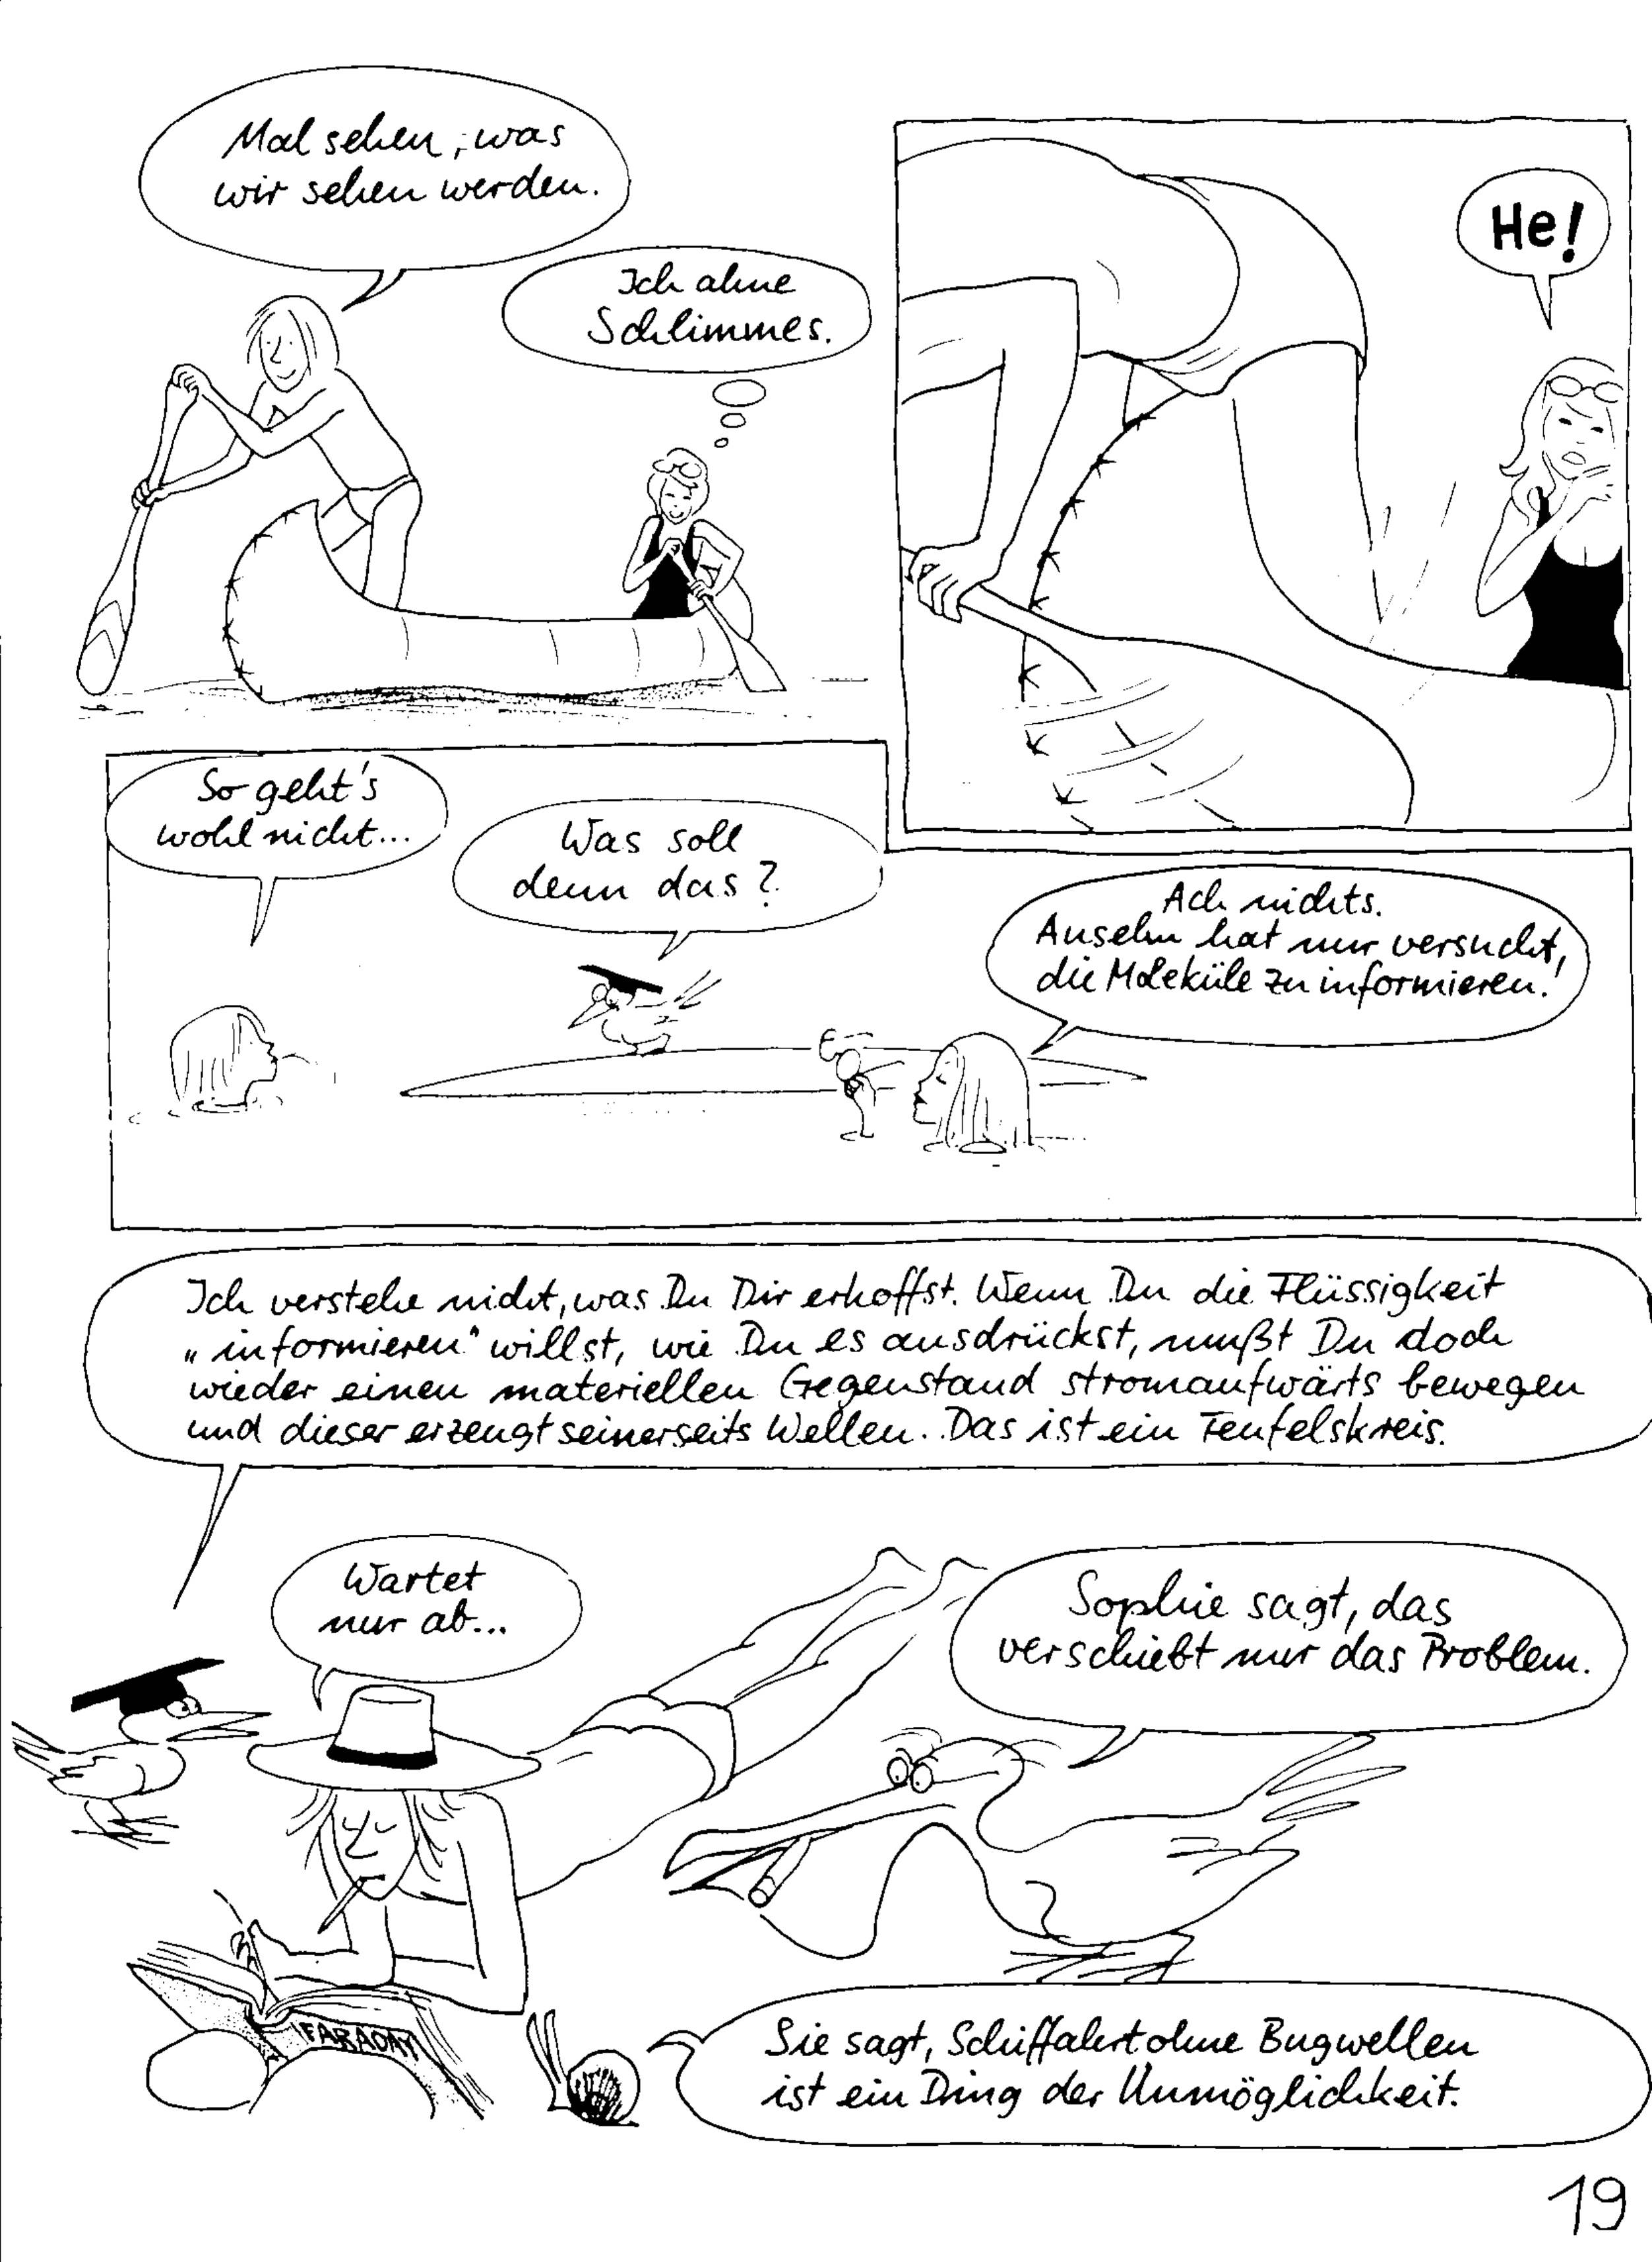 Mal sehen, was
wir sehen werden.
Ich ahne
Schlimmes.
He!
So geht's
wohl nicht...
Was soll
denn das?
Ach nichts.
Anselm hat nur versucht,
die Moleküle zu informieren!
Ich verstehe nicht, was Du Dir erhoffst. Wenn Du die Flüssigkeit
„informieren“ willst, wie Du es ausdrückst, mußt Du doch
wieder einen materiellen Gegenstand stromaufwärts bewegen
und dieser erzeugt seinerseits Wellen. Das ist ein Teufelskreis.
Wartet
nur ab...
Sophie sagt, das
verschiebt nur das Problem.
FARADAY
Sie sagt, Schiffahrt ohne Bugwellen
ist ein Ding der Unmöglichkeit.
19